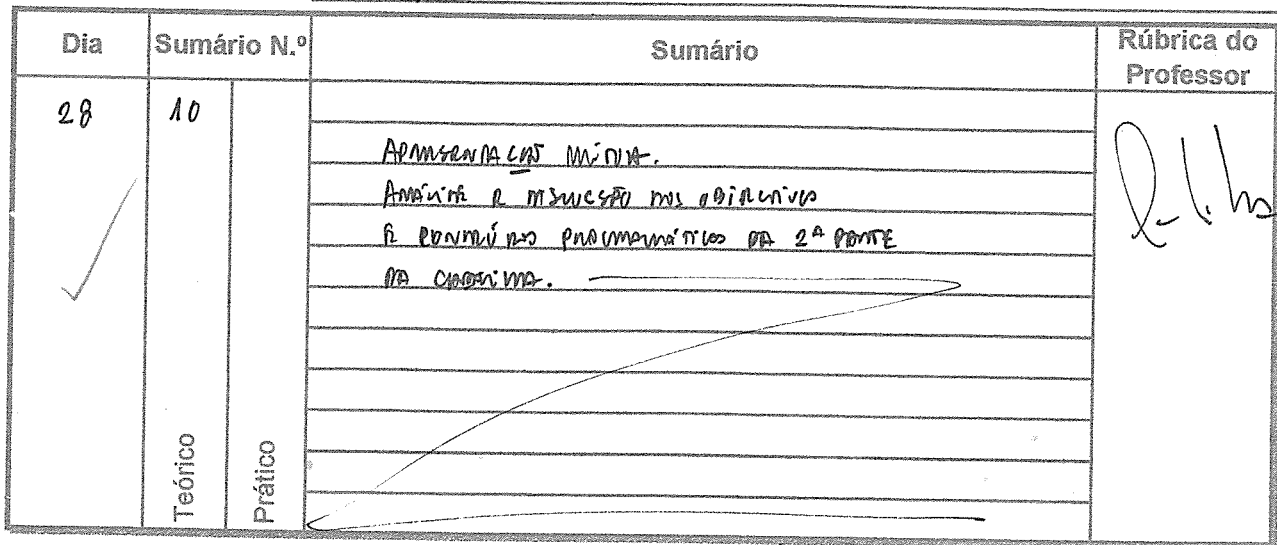 Dia Sumário N.º Sumário Rúbrica do Professor
28 10
APRESENTAÇÃO MÚTUA.
ANÁLISE E DISCUSSÃO DOS OBJECTIVOS
E CONTEÚDOS PROGRAMÁTICOS DA 2ª PARTE
DA CADEIRA.
Teórico Prático